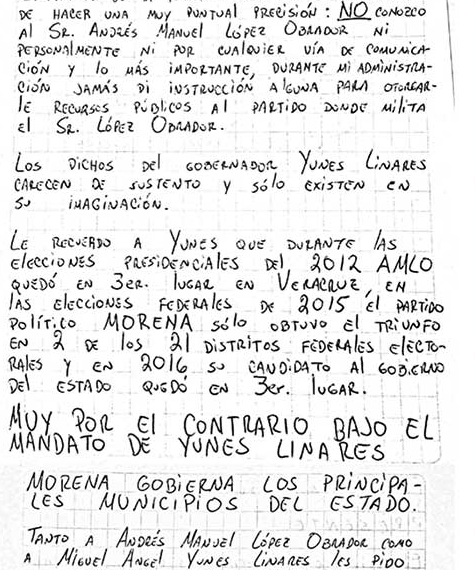 DE HACER UNA MUY PUNTUAL PRECISIÓN: NO CONOZCO
Al SR. ANDRÉS MANUEL LÓPEZ OBRADOR NI
PERSONALMENTE NI POR CUALQUIER VÍA DE COMUNICA-
CIÓN Y LO MÁS IMPORTANTE, DURANTE MI ADMINISTRA-
CIÓN JAMÁS DI INSTRUCCIÓN ALGUNA PARA OTORGAR-
LE RECURSOS PÚBLICOS Al PARTIDO DONDE MILITA
El SR. LÓPEZ OBRADOR.
LOS DICHOS DEL GOBERNADOR YUNES LINARES
CARECEN DE SUSTENTO Y SÓLO EXISTEN EN
SU IMAGINACIÓN.
LE RECUERDO A YUNES QUE DURANTE LAS
ELECCIONES PRESIDENCIALES DEL 2012 AMLO
QUEDÓ EN 3ER. LUGAR EN VERACRUZ, EN
LAS ELECCIONES FEDERALES DE 2015 El PARTIDO
POLÍTICO MORENA SÓLO OBTUVO El TRIUNFO
EN 2 DE LOS 21 DISTRITOS FEDERALES ELECTO-
RALES Y EN 2016 SU CANDIDATO Al GOBIERNO
DEL ESTADO QUEDÓ EN 3er. LUGAR.
MUY POR El CONTRARIO BAJO EL
MANDATO DE YUNES LINARES
MORENA GOBIERNA LOS PRINCIPA-
LES MUNICIPIOS DEL ESTADO.
TANTO A ANDRÉS MANUEL LÓPEZ OBRADOR COMO
A MIGUEL ANGEL YUNES LINARES LES PIDO